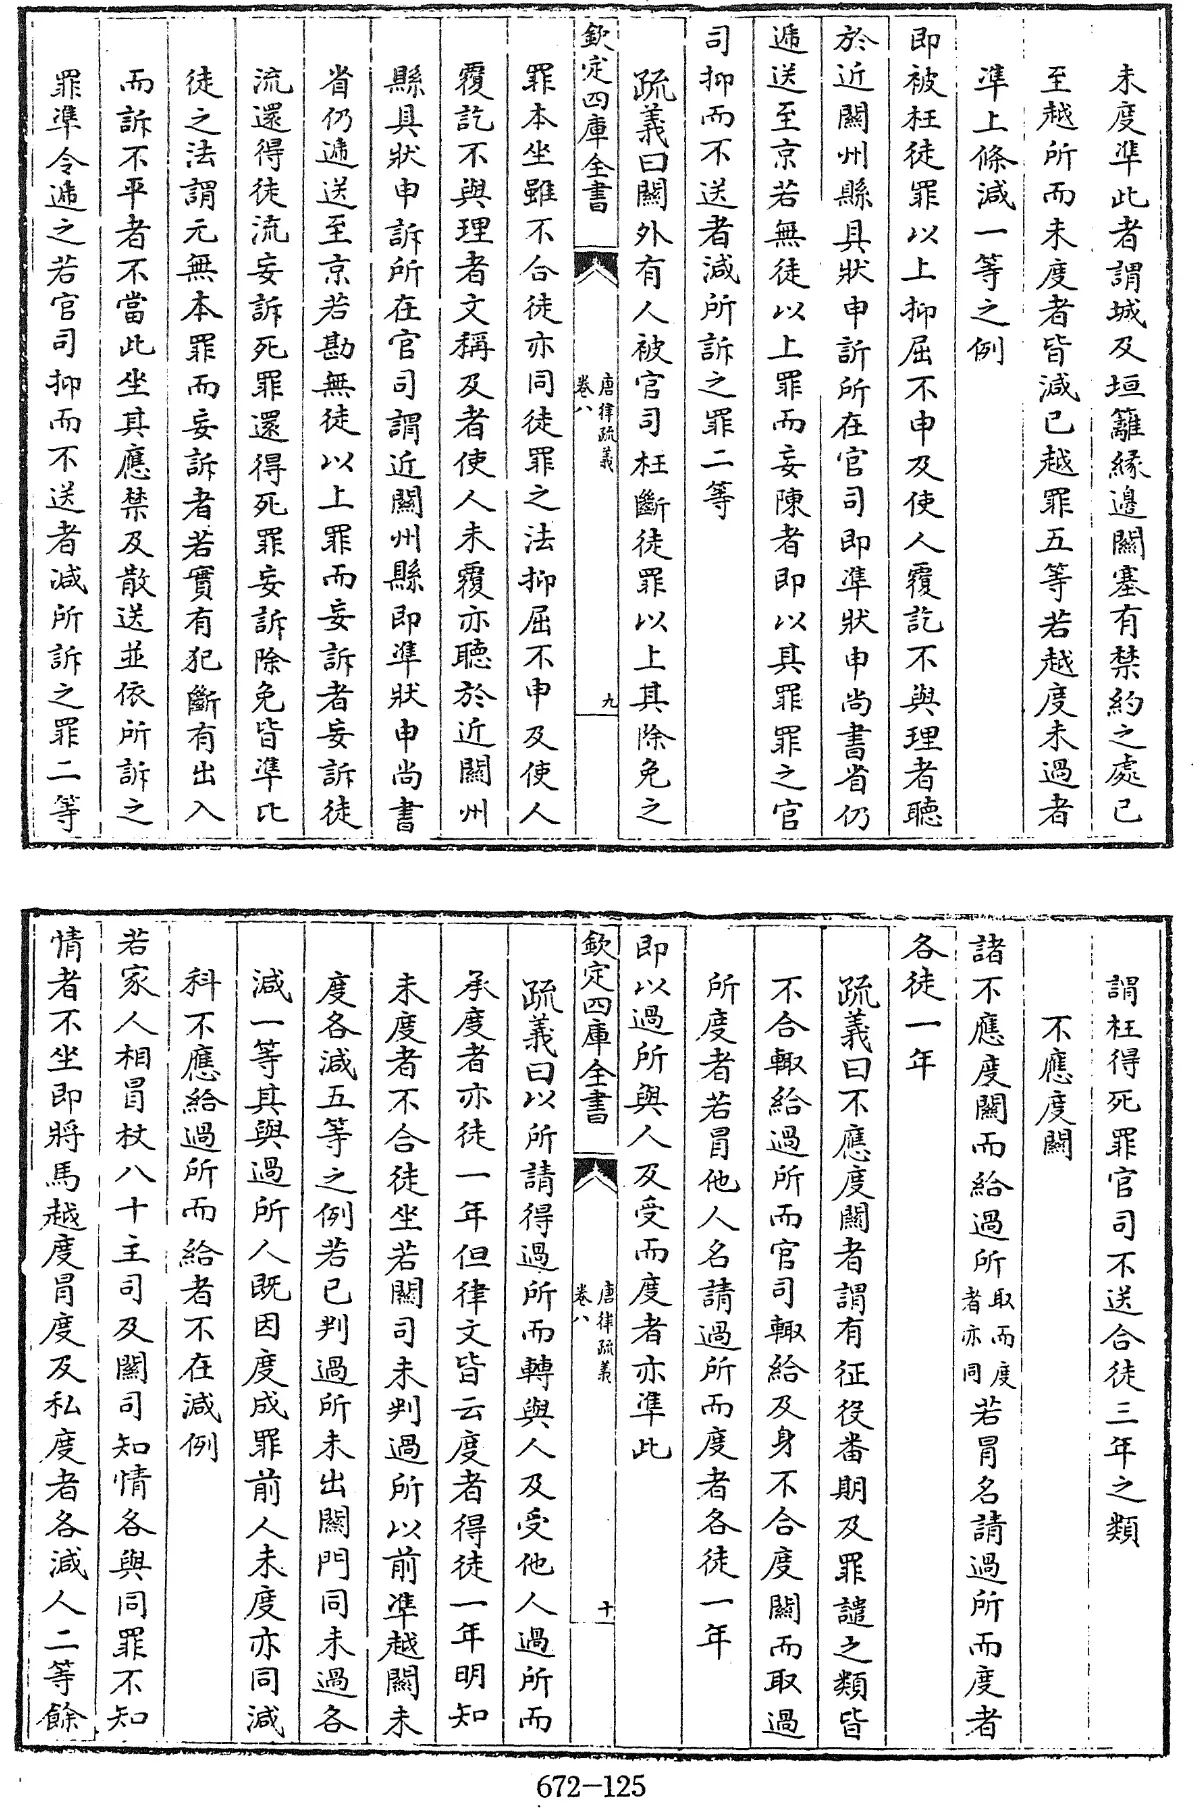 未度準此者謂城及垣籬緣邊關塞有禁約之處已
至越所而未度者皆減已越罪五等若越度未過者
準上條減一等之例
即被枉徒罪以上抑屈不申及使人覆訖不與理者聽
於近關州縣具狀申訴所在官司即準狀申尚書省仍
遞送至京若無徒以上罪而妄陳者即以其罪罪之官
司抑而不送者減所訴之罪二等
疏義曰關外有人被官司枉斷徒罪以上其除免之
欽定四庫全書
唐律疏義
卷八
九
罪本坐雖不合徒亦同徒罪之法抑屈不申及使人
覆訖不與理者文稱及者使人未覆亦聽於近關州
縣具狀申訴所在官司謂近關州縣即準狀申尚書
省仍遞送至京若勘無徒以上罪而妄訴者妄訴徒
流還得徒流妄訴死罪還得死罪妄訴除免皆準比
徒之法謂元無本罪而妄訴者若實有犯斷有出入
而訴不平者不當此坐其應禁及散送並依所訴之
罪準令遞之若官司抑而不送者減所訴之罪二等
謂枉得死罪官司不送合徒三年之類
不應度關
諸不應度關而給過所取而度者亦同若冒名請過所而度者
各徒一年
疏義曰不應度關者謂有征役番期及罪譴之類皆
不合輙給過所而官司輙給及身不合度關而取過
所度者若冒他人名請過所而度者各徒一年
即以過所與人及受而度者亦準此
欽定四庫全書
唐律疏義
卷八
十
疏義曰以所請得過所而轉與人及受他人過所而
承度者亦徒一年但律文皆云度者得徒一年明知
未度者不合徒坐若關司未判過所以前準越關未
度各減五等之例若已判過所未出關門同未過各
減一等其與過所人既因度成罪前人未度亦同減
科不應給過所而給者不在減例
若家人相冒杖八十主司及關司知情各與同罪不知
情者不坐即將馬越度冒度及私度者各減人二等餘
672-125